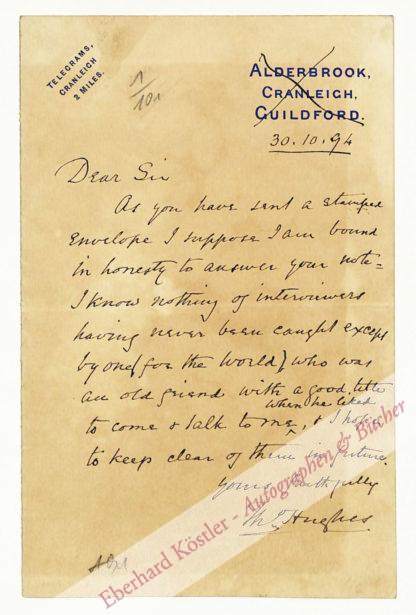 TELEGRAMS,
CRANLEIGH
2 MILES.
ALDERBROOK,
CRANLEIGH,
GUILDFORD.
30.10.94
Dear Sir
As you have sent a stamped
envelope I suppose I am bound
in honesty to answer your note =
I know nothing of interviewers
having never been caught except
by one (for the World) who was
an old friend with a good title
when he liked
to come & talk to me, & I hope
to keep clear of them in future.
yours faithfully
Thos Hughes
Eberhard Köstler - Autographen & Bücher